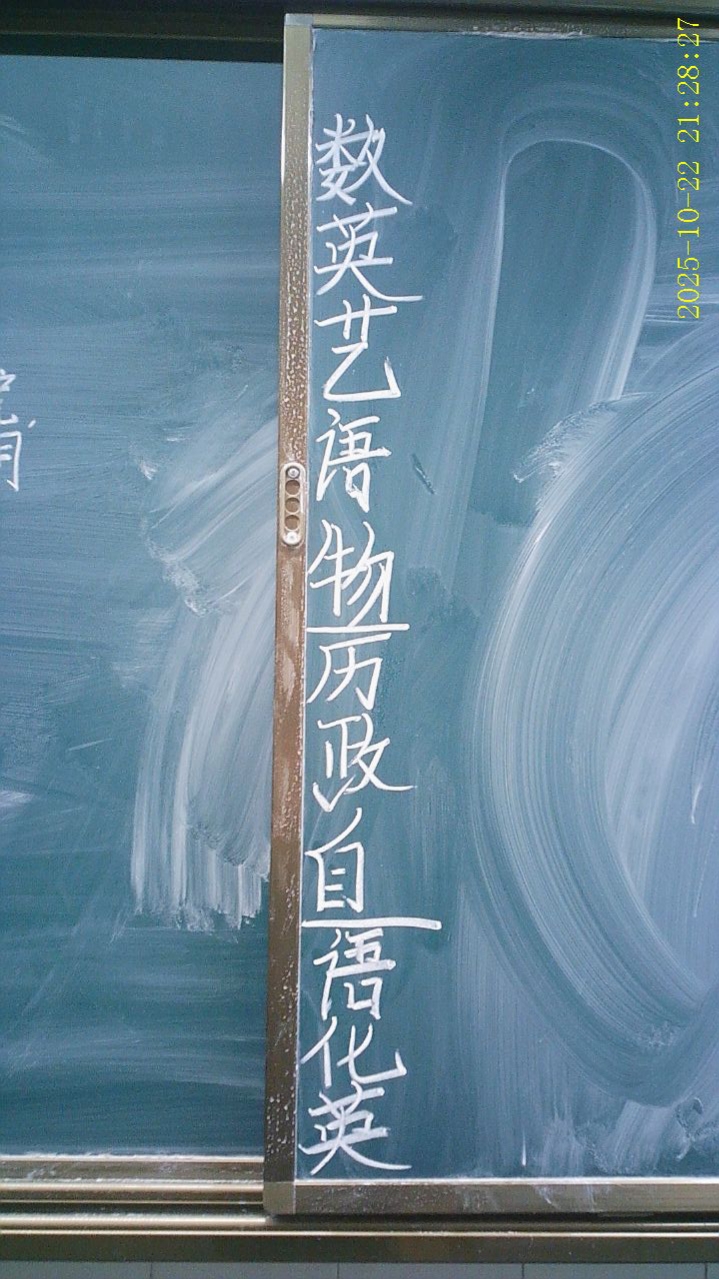 数
英
艺
语
物
历
政
自
语
化
英
2025-10-22 21:28:27